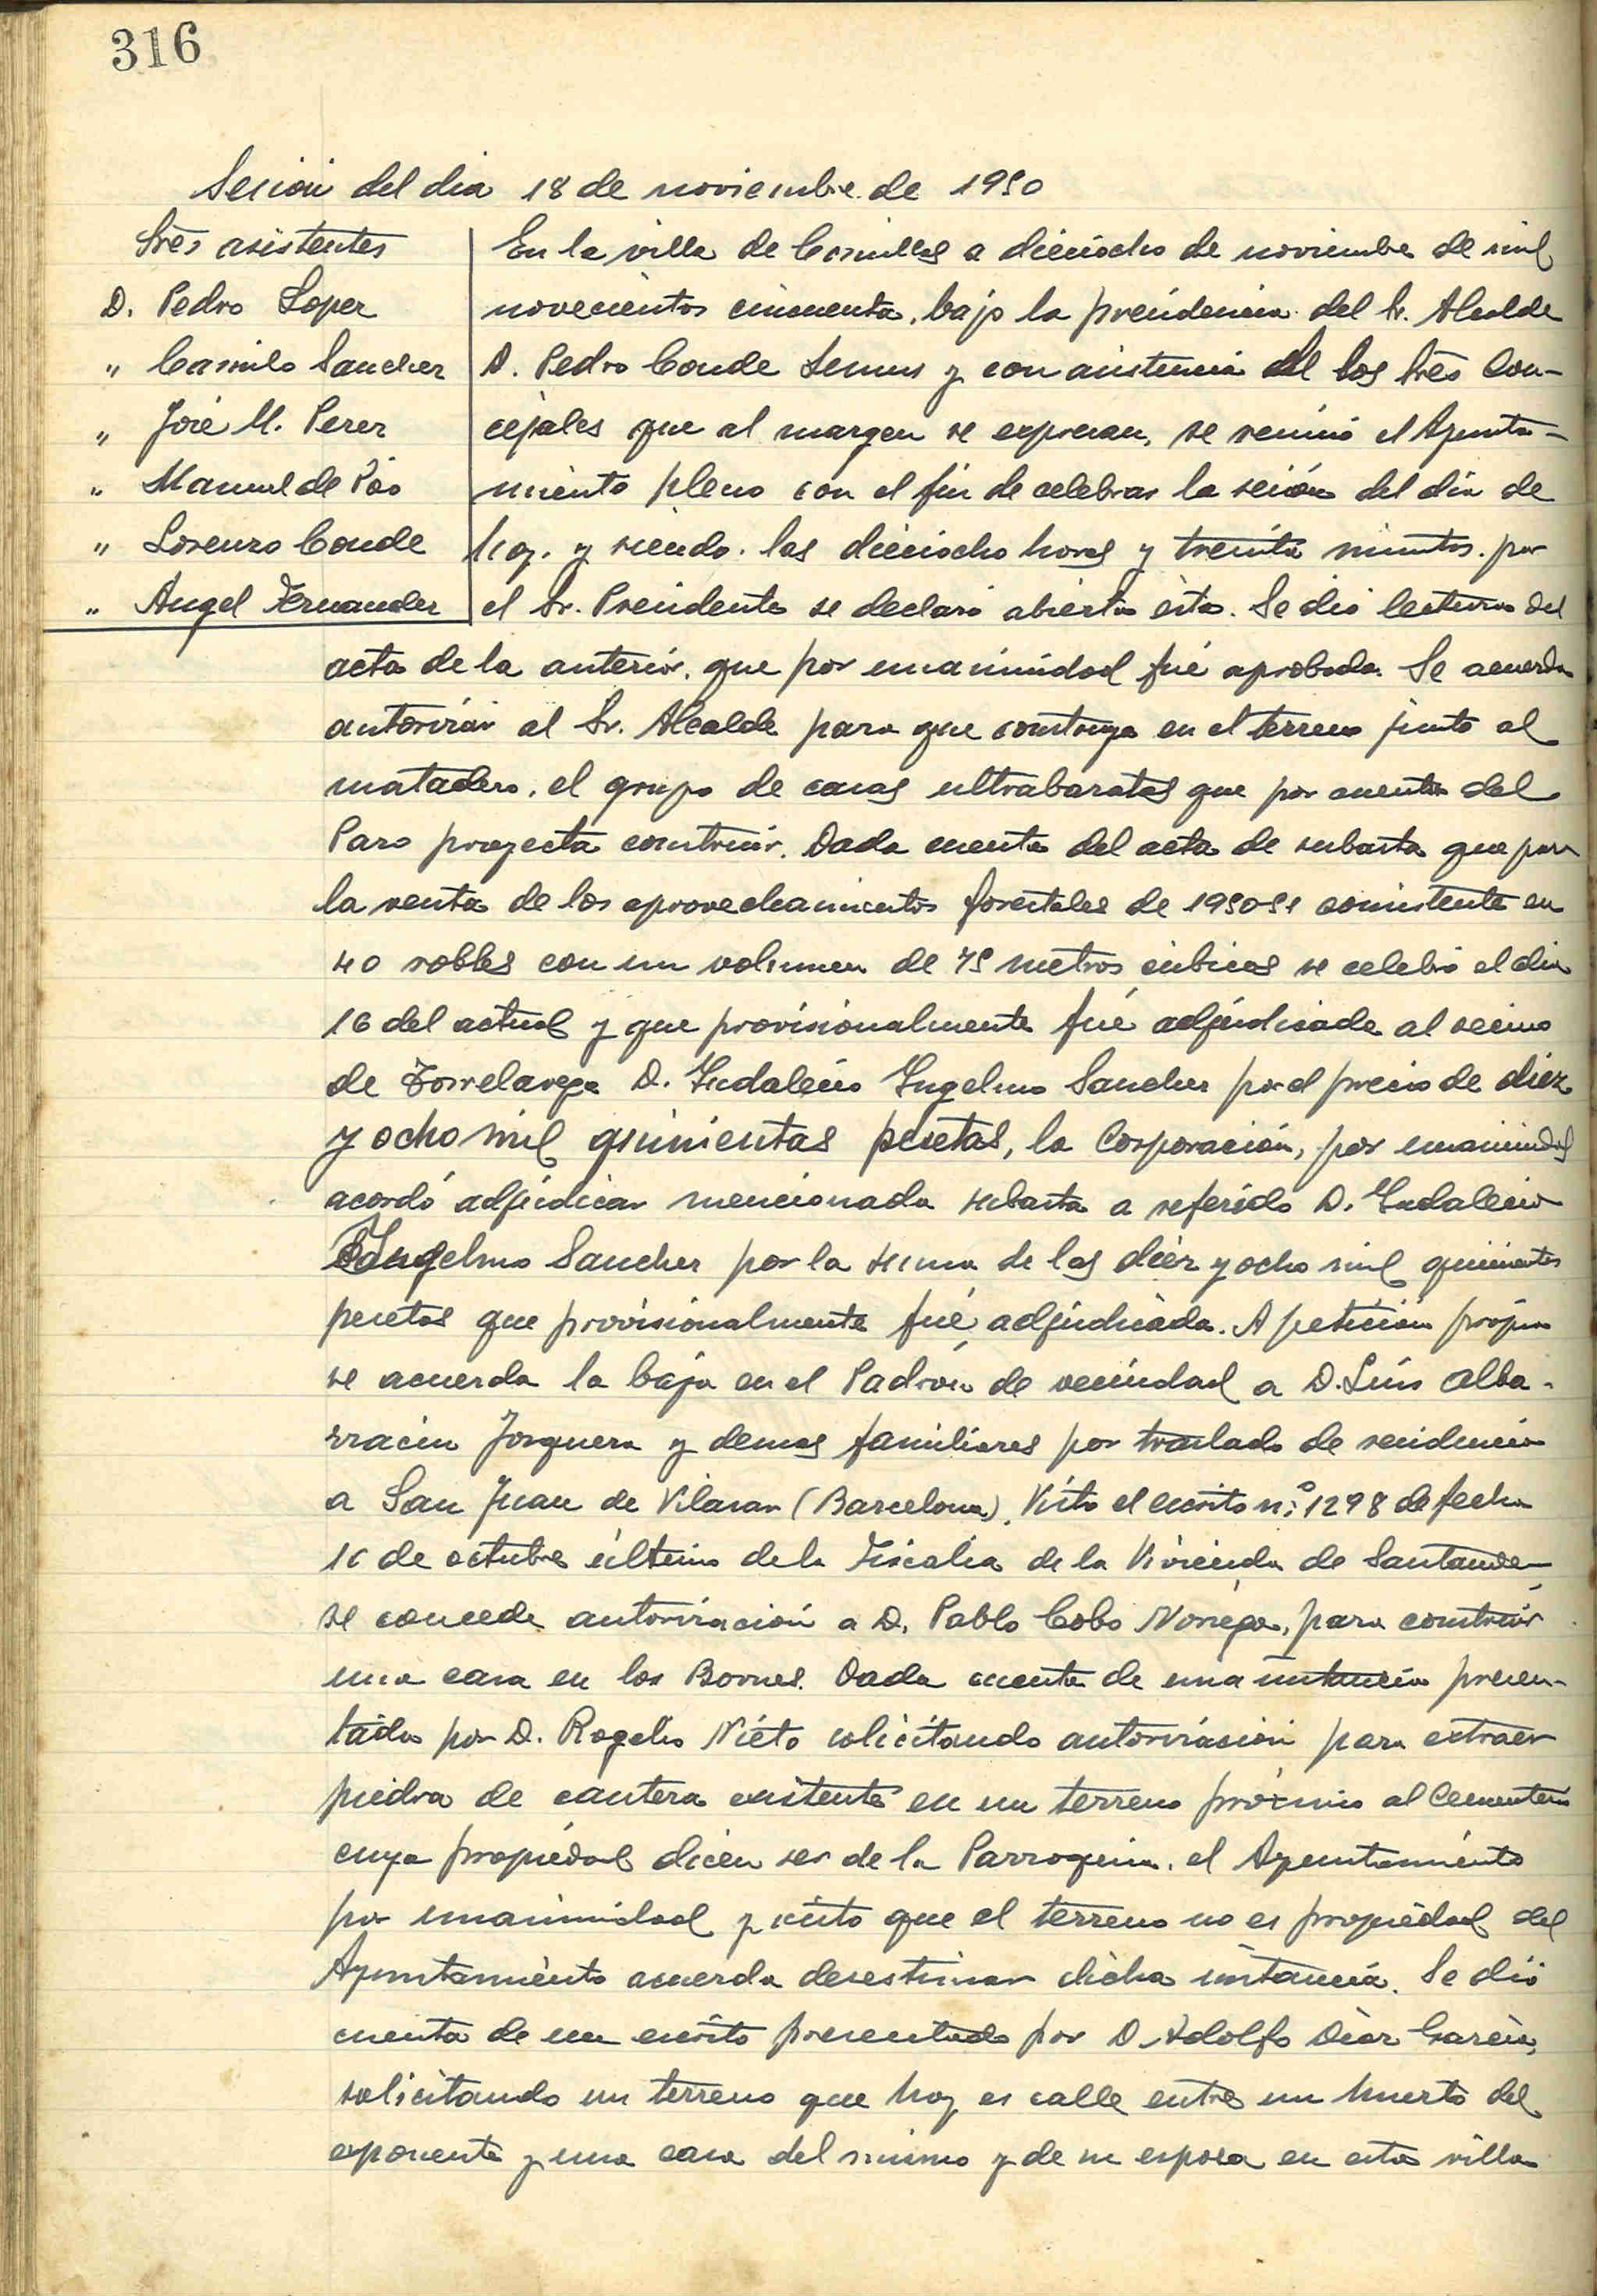 316
Sesion del dia 18 de noviembre de 1950
Sres asistentes
D. Pedro Lopez
" Camilo Sanchez
" José M. Perez
" Manuel de Pio
" Lorenzo Conde
" Angel Fernandez
En la villa de Comillas a dieciocho de noviembre de mil
novecientos cincuenta, bajo la presidencia del Sr. Alcalde
D. Pedro Conde Lemus y con asistencia del los Sres Con-
cejales que al margen se expresan, se reunió el Ayunta-
miento pleno con el fin de celebrar la sesión del dia de
hoy. y siendo las dieciocho horas y treinta minutos. por
el Sr. Presidente se declaró abierta ésta. Se dió lectura del
acta de la anterior, que por unanimidad fué aprobada. Se acuerda
autorizar al Sr. Alcalde para que construya en el terreno junto al
matadero, el grupo de casas ultrabaratas que por cuenta del
Paro proyecta construir. Dada cuenta del acta de subasta que para
la venta de los aprovechamientos forestales de 1950-51 consistente en
40 robles con un volumen de 75 metros cúbicos se celebró el dia
16 del actual y que provisionalmente fué adjudicada al vecino
de Torrelavega D. Indalecio Ingelmo Sanchez por el precio de diez
y ocho mil quinientas pesetas, la Corporación, por unanimidad
acordó adjudicar mencionada subasta a referido D. Indalecio
Ingelmo Sanchez por la suma de las diez y ocho mil quinientas
pesetas que provisionalmente fué adjudicada. A petición propia
se acuerda la baja en el Padrón de vecindad a D. Luis Alba-
rracin Jorquera y demas familiares por traslado de residencia
a San Juan de Vilasar (Barcelona). Visto el escrito n.º 1298 de fecha
16 de octubre último de la Fiscalia de la Vivienda de Santander
se concede autorización a D. Pablo Cobo Noriega, para construir
una casa en los Bornes. Dada cuenta de una instancia presen-
tada por D. Rogelio Nieto solicitando autorización para extraer
piedra de cantera existente en un terreno próximo al Cementerio
cuya propiedad dicen ser de la Parroquia, el Ayuntamiento
por unanimidad y visto que el terreno no es propiedad del
Ayuntamiento acuerda desestimar dicha instancia. Se dió
cuenta de un escrito presentado por D. Adolfo Diaz Garcia,
solicitando un terreno que hoy es calle entre un huerto del
exponente y una casa del mismo y de su esposa en esta villa